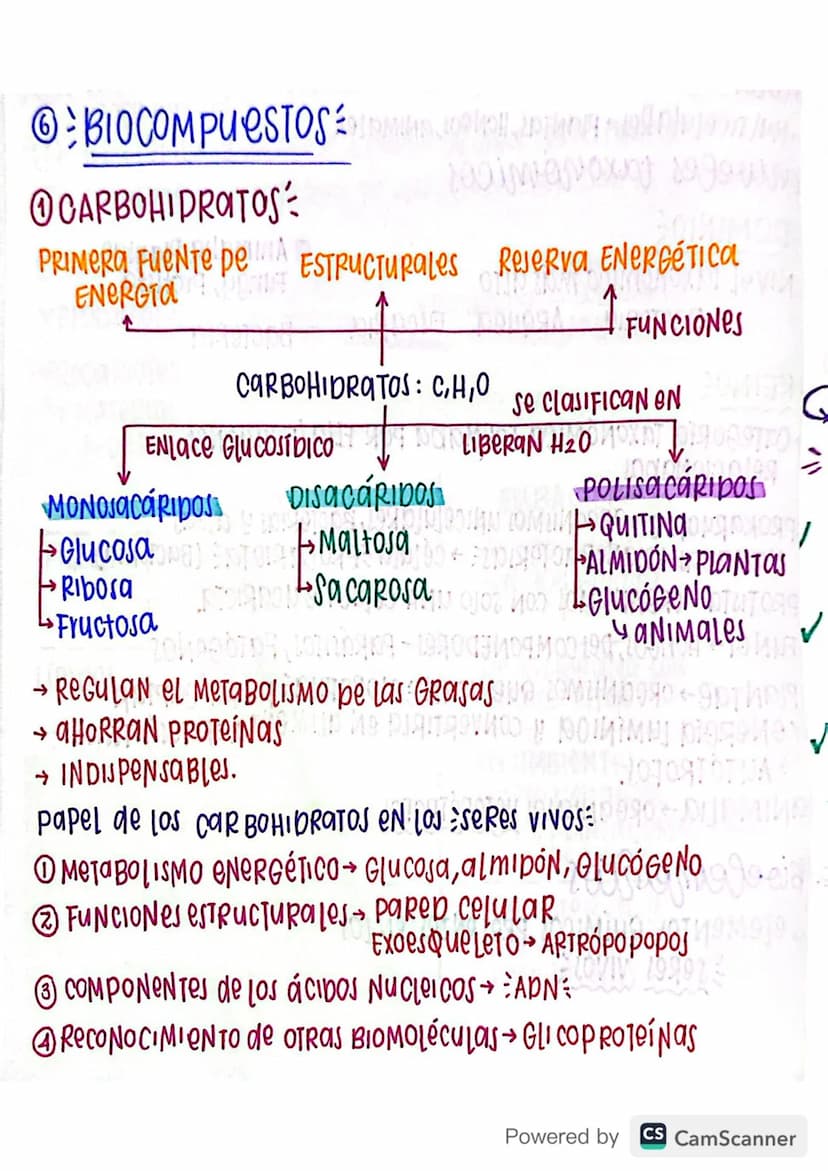 ⑥ BIOCOMPUESTOS
① CARBOHIDRATOS
PRIMERA FUENTE DE ENERGÍA
ESTRUCTURALES
RESERVA ENERGÉTICA
FUNCIONES
CARBOHIDRATOS: C,H,O
SE CLASIFICAN EN
ENLACE GLUCOSÍDICO
LIBERAN H2O
MONOSACÁRIDOS
→ Glucosa
→ Ribosa
→ Fructosa
DISACÁRIDOS
→ Maltosa
→ Sacarosa
POLISACÁRIDOS
→ QUITINA
→ ALMIDÓN → PLANTAS
→ GLUCÓGENO
↳ ANIMALES
→ REGULAN EL METABOLISMO DE LAS GRASAS
→ AHORRAN PROTEÍNAS
→ INDISPENSABLES.
PAPEL DE LOS CARBOHIDRATOS EN LOS SERES VIVOS:
① METABOLISMO ENERGÉTICO → GLUCOSA, ALMIDÓN, GLUCÓGENO
② FUNCIONES ESTRUCTURALES → PARED CELULAR
EXOESQUELETO → ARTRÓPODOS
③ COMPONENTES DE LOS ÁCIDOS NUCLEICOS → ADN
④ RECONOCIMIENTO DE OTRAS BIOMOLÉCULAS → GLICOPROTEÍNAS
Powered by CS CamScanner